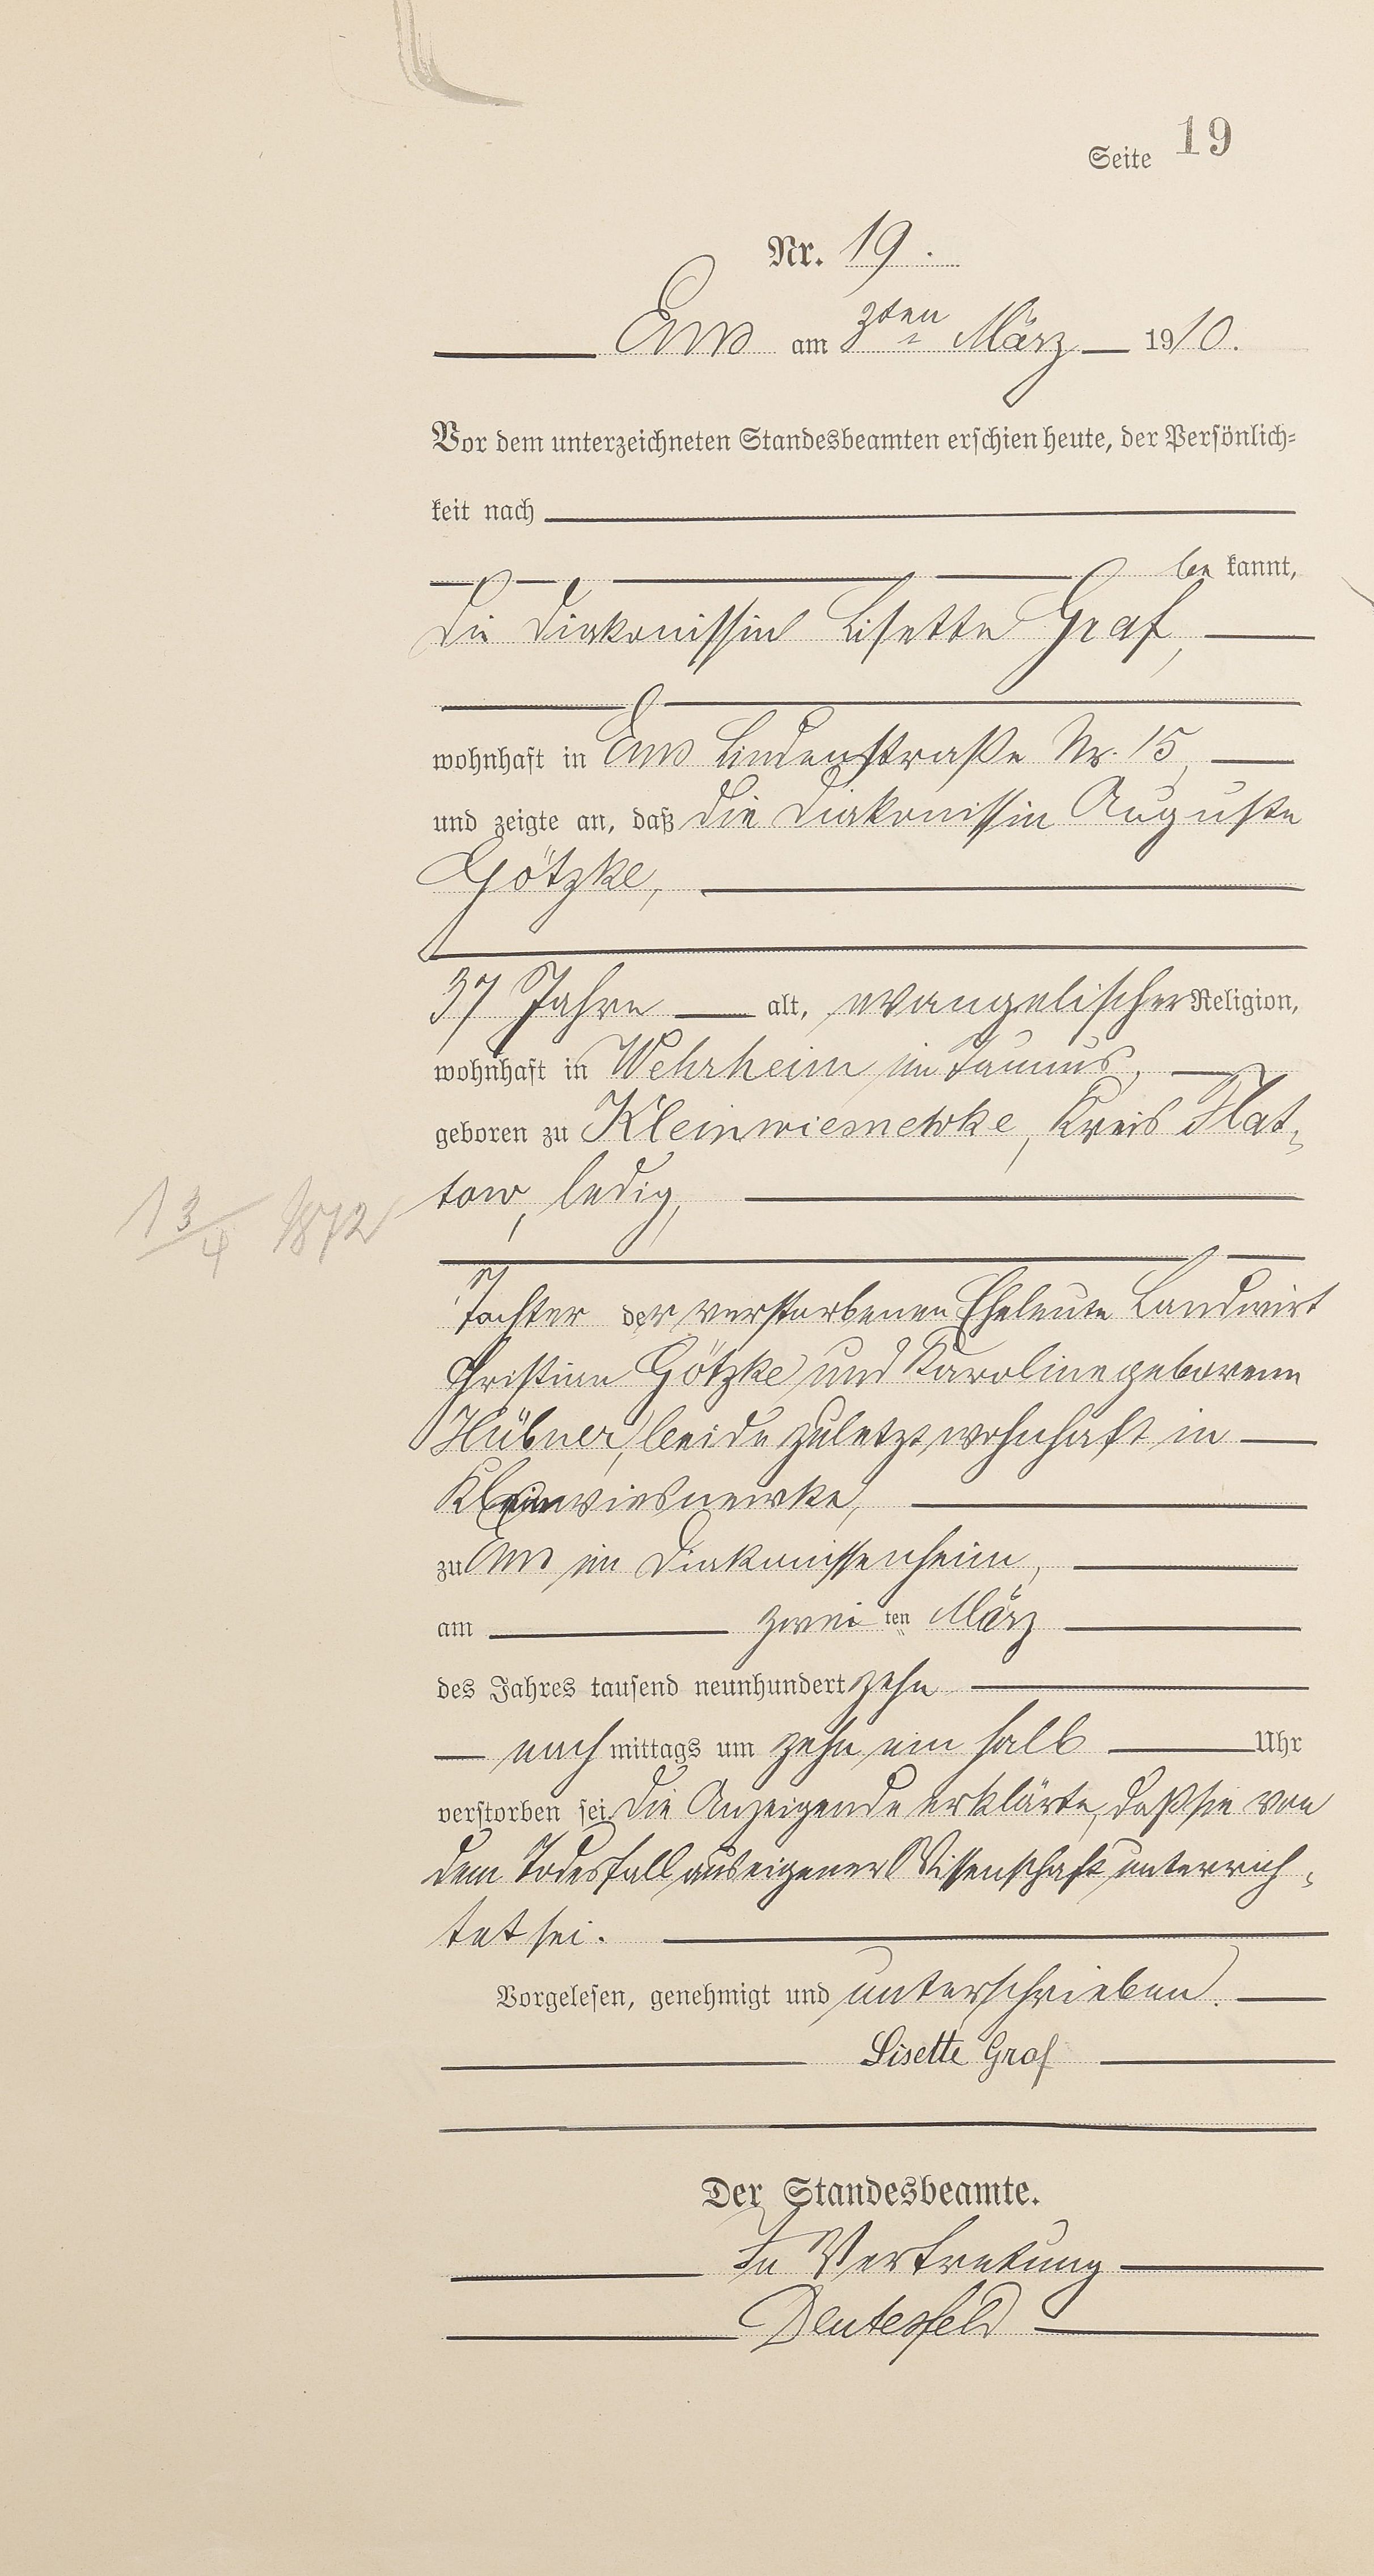 Seite 19
Nr. 19.
Ems am 3ten März 1910.
Vor dem unterzeichneten Standesbeamten erschien heute, der Persönlich-
keit nach
be kannt,
die Diakonissin Lisette Graf,
wohnhaft in Ems Lindenstraße Nr. 15,
und zeigte an, daß die Diakonissin Auguste
Götzke,
37 Jahre alt, evangelischer Religion,
wohnhaft in Wehrheim im Taunus,
geboren zu Kleinwiesnewke, Kreis Flat-
tow, ledig,
13/4 1872
Tochter der verstorbenen Eheleute Landwirt
Christian Götzke und Karoline geborenen
Hübner, beide zuletzt wohnhaft in
Kleinwiesnewke,
zu Ems im Diakonissenheim,
am zwei ten März
des Jahres tausend neunhundert zehn
nach mittags um zehn ein halb Uhr
verstorben sei. Die Anzeigende erklärte, daß sie von
dem Todesfall aus eigener Wissenschaft unterrich-
tet sei.
Vorgelesen, genehmigt und unterschrieben.
Lisette Graf
Der Standesbeamte.
In Vertretung